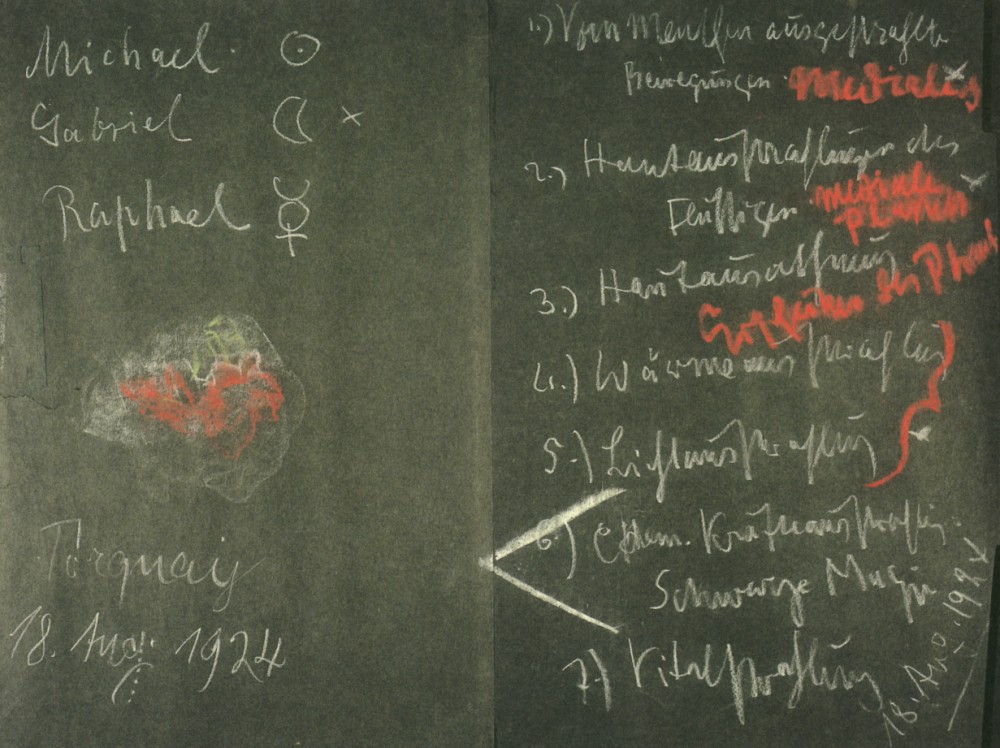 Michael ☉
Gabriel ☾ ×
Raphael ☿
Torquay
18. Aug. 1924
1.) Vom Menschen ausgestrahlte
Bewegungen. Mediales ×
2.) Hautausstrahlungen des
Flüssigen mediale ×
3.) Hautausathmung
des
4.) Wärmeausstrahlung
5.) Lichtausstrahlung
6.) Chem. Kräfteausstrahlung.
Schwarze Magie
7.) Vitalstrahlung
18. Aug. 1924